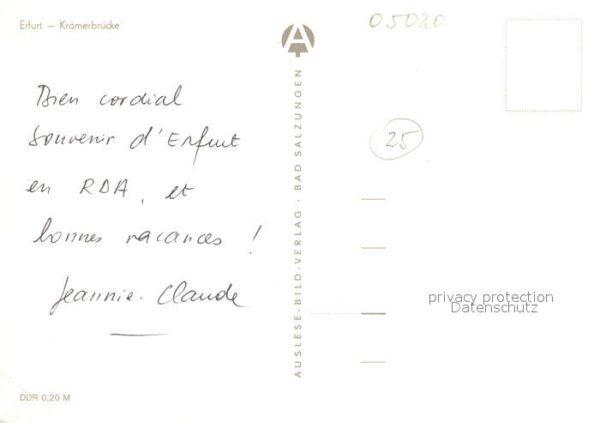 Erfurt — Krämerbrücke
05020
A
Bien cordial
souvenir d'Erfurt
en RDA, et
bonnes vacances !
Jeannie-Claude
25
AUSLESE-BILD-VERLAG · BAD SALZUNGEN
privacy protection
Datenschutz
DDR 0,20 M